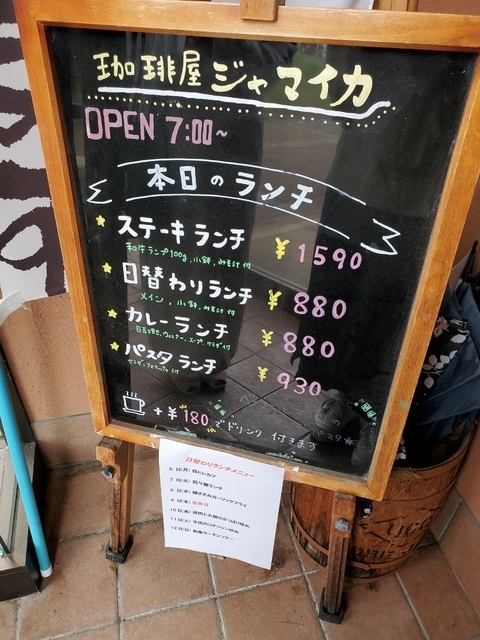 珈琲屋 ジャマイカ
OPEN 7:00~
本日のランチ
ステーキランチ ¥1590
和牛ランプ100g、小鉢、みそ汁付
日替わりランチ ¥880
メイン、小鉢、みそ汁付
カレーランチ ¥880
目玉焼き、ウィンナー、スープ、サラダ付
パスタランチ ¥930
+¥180でドリンク付きます
日替わりランチメニュー
6日(月)
7日(火)
8日(水)
9日(木) 定休日
10日(金)
11日(土)
12日(日)